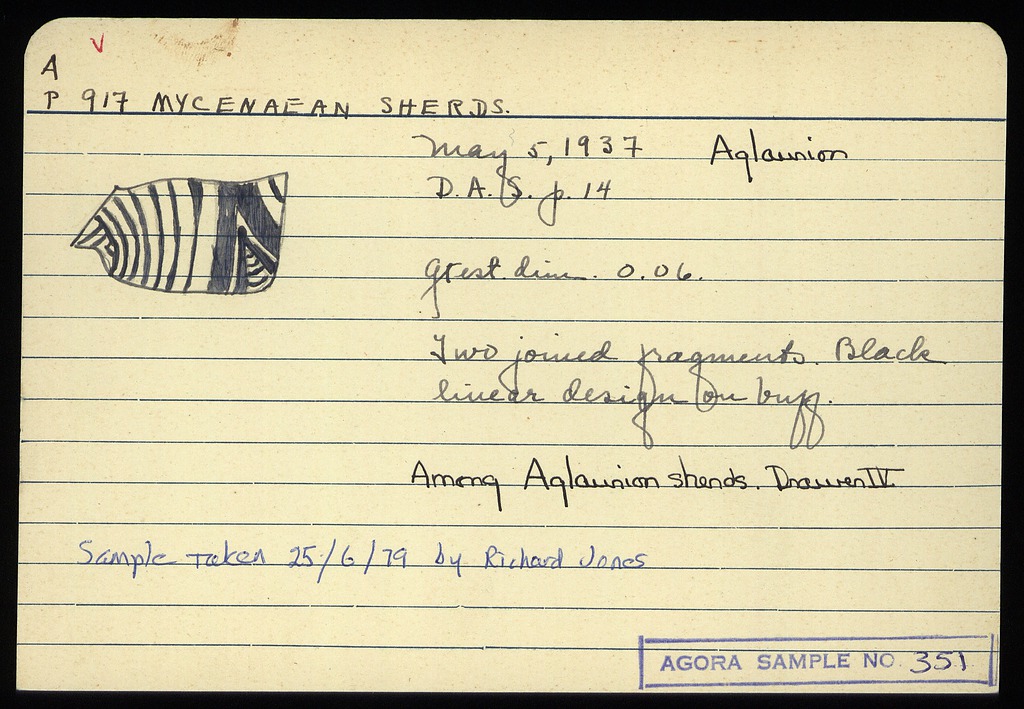 V
A
P 917 MYCENAEAN SHERDS.
May 5, 1937 Aglaurion
D.A.S. p. 14
Gtest dim. 0.06.
Two joined fragments. Black
linear design on buff.
Among Aglaurion sherds. Drawer IV
Sample taken 25/6/79 by Richard Jones
AGORA SAMPLE NO. 351